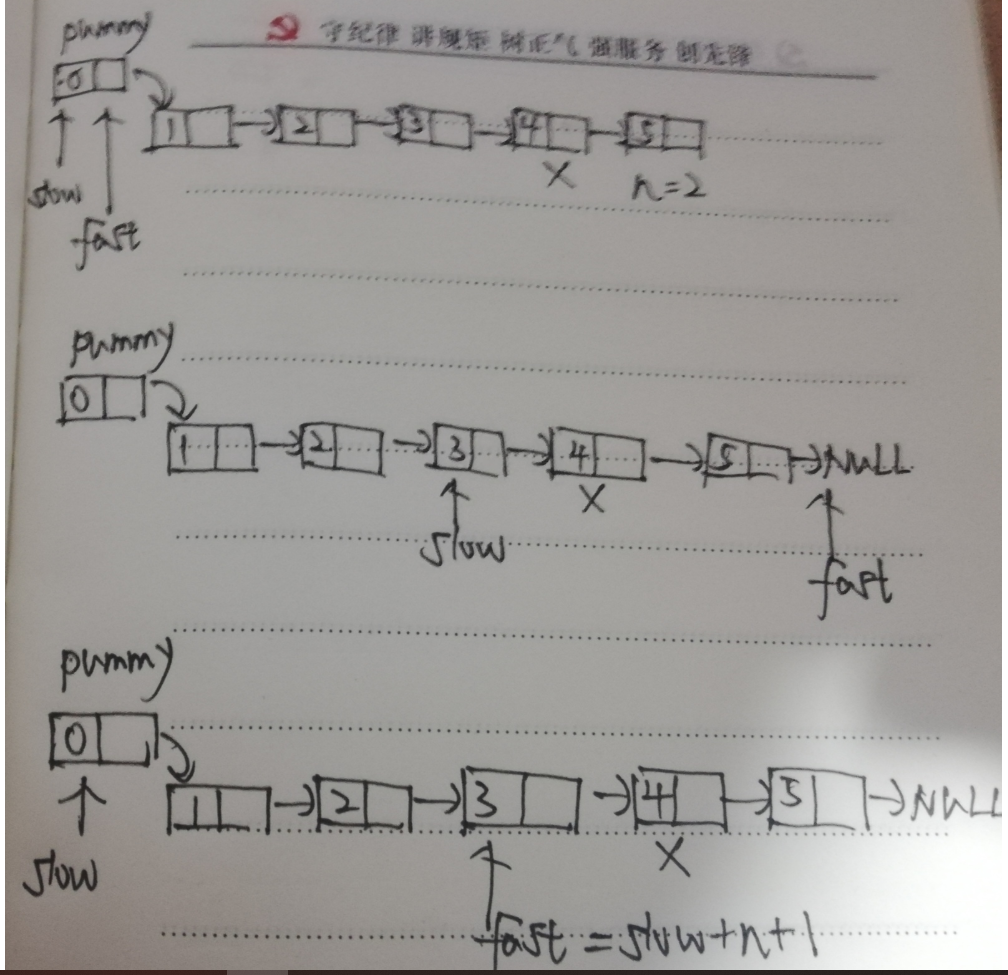 守纪律 讲规矩 树正气 强服务 创先锋
pummy
0
1 → 2 → 3 → 4 → 5
X n=2
slow
fast
pummy
0
1 → 2 → 3 → 4 → 5 → NULL
X
slow
fast
pummy
0
1 → 2 → 3 → 4 → 5 → NULL
X
slow
fast = slow+n+1